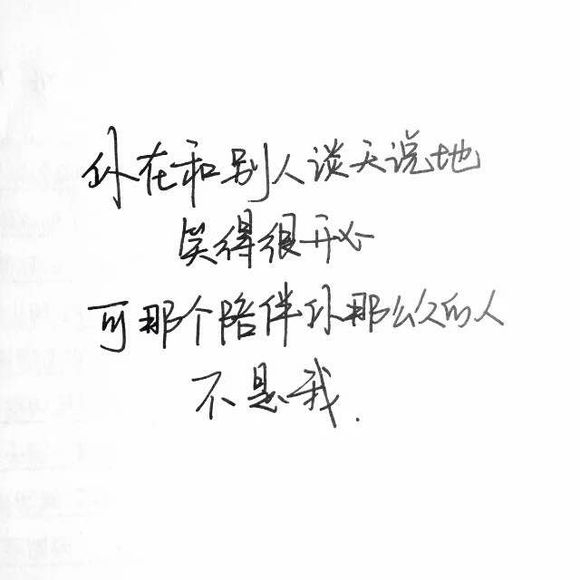 你在和别人谈天说地
笑得很开心
可那个陪伴你那么久的人
不是我.